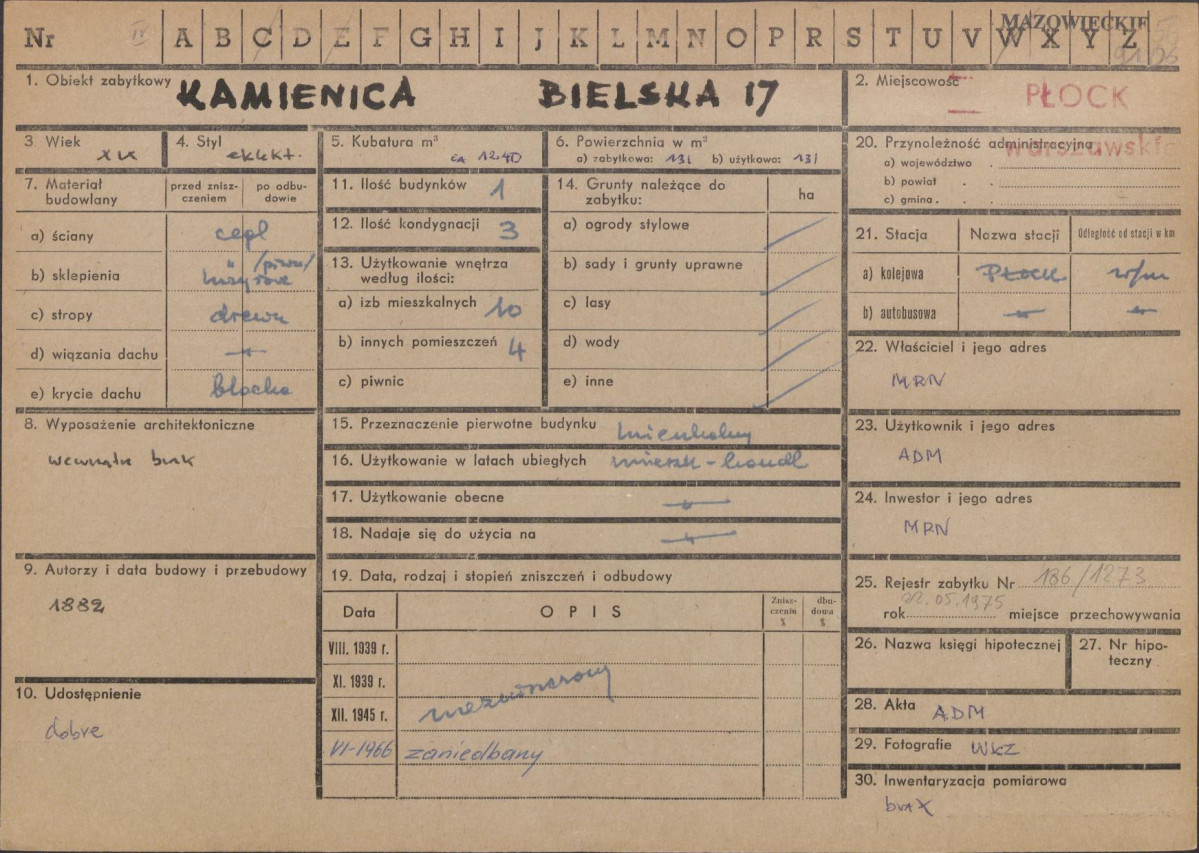 Nr IV A B C D E F G H I J K L M N O P R S T U V W X Y Z
MAZOWIECKIE
1. Obiekt zabytkowy KAMIENICA BIELSKA 17
2. Miejscowość PŁOCK
3 Wiek XIX
4. Styl eklekt.
5. Kubatura m³ ca 1240
6. Powierzchnia w m²
a) zabytkowa: 131 b) użytkowa: 131
7. Materiał budowlany
przed zniszczeniem
po odbudowie
a) ściany cegl
b) sklepienia /piwn/
c) stropy drewn
d) wiązania dachu -"-
e) krycie dachu blacha
8. Wyposażenie architektoniczne
wewnątrz brak
9. Autorzy i data budowy i przebudowy
1882
10. Udostępnienie
dobre
11. Ilość budynków 1
12. Ilość kondygnacji 3
13. Użytkowanie wnętrza
według ilości:
a) izb mieszkalnych 10
b) innych pomieszczeń 4
c) piwnic
14. Grunty należące do
zabytku:
ha
a) ogrody stylowe
b) sady i grunty uprawne
c) lasy
d) wody
e) inne
15. Przeznaczenie pierwotne budynku mieszkalny
16. Użytkowanie w latach ubiegłych mieszk-handl
17. Użytkowanie obecne -"-
18. Nadaje się do użycia na -"-
19. Data, rodzaj i stopień zniszczeń i odbudowy
Data
OPIS
Zniszczeniu %
dbudowa %
VIII. 1939 r.
XI. 1939 r.
XII. 1945 r. niezniszczony
VI-1966 zaniedbany
20. Przynoleżność administracyjna
warszawskie
a) województwo
b) powiat
c) gmina
21. Stacja
Nazwa stacji
Odległość od stacji w km
a) kolejowa PŁOCK w/m
b) autobusowa -"- -"-
22. Właściciel i jego adres
MRN
23. Użytkownik i jego adres
ADM
24. Inwestor i jego adres
MRN
25. Rejestr zabytku Nr 186/1273
22.05.1975
rok miejsce przechowywania
26. Nazwa księgi hipotecznej
27. Nr hipoteczny
28. Akta ADM
29. Fotografie WKZ
30. Inwentaryzacja pomiarowa
brak